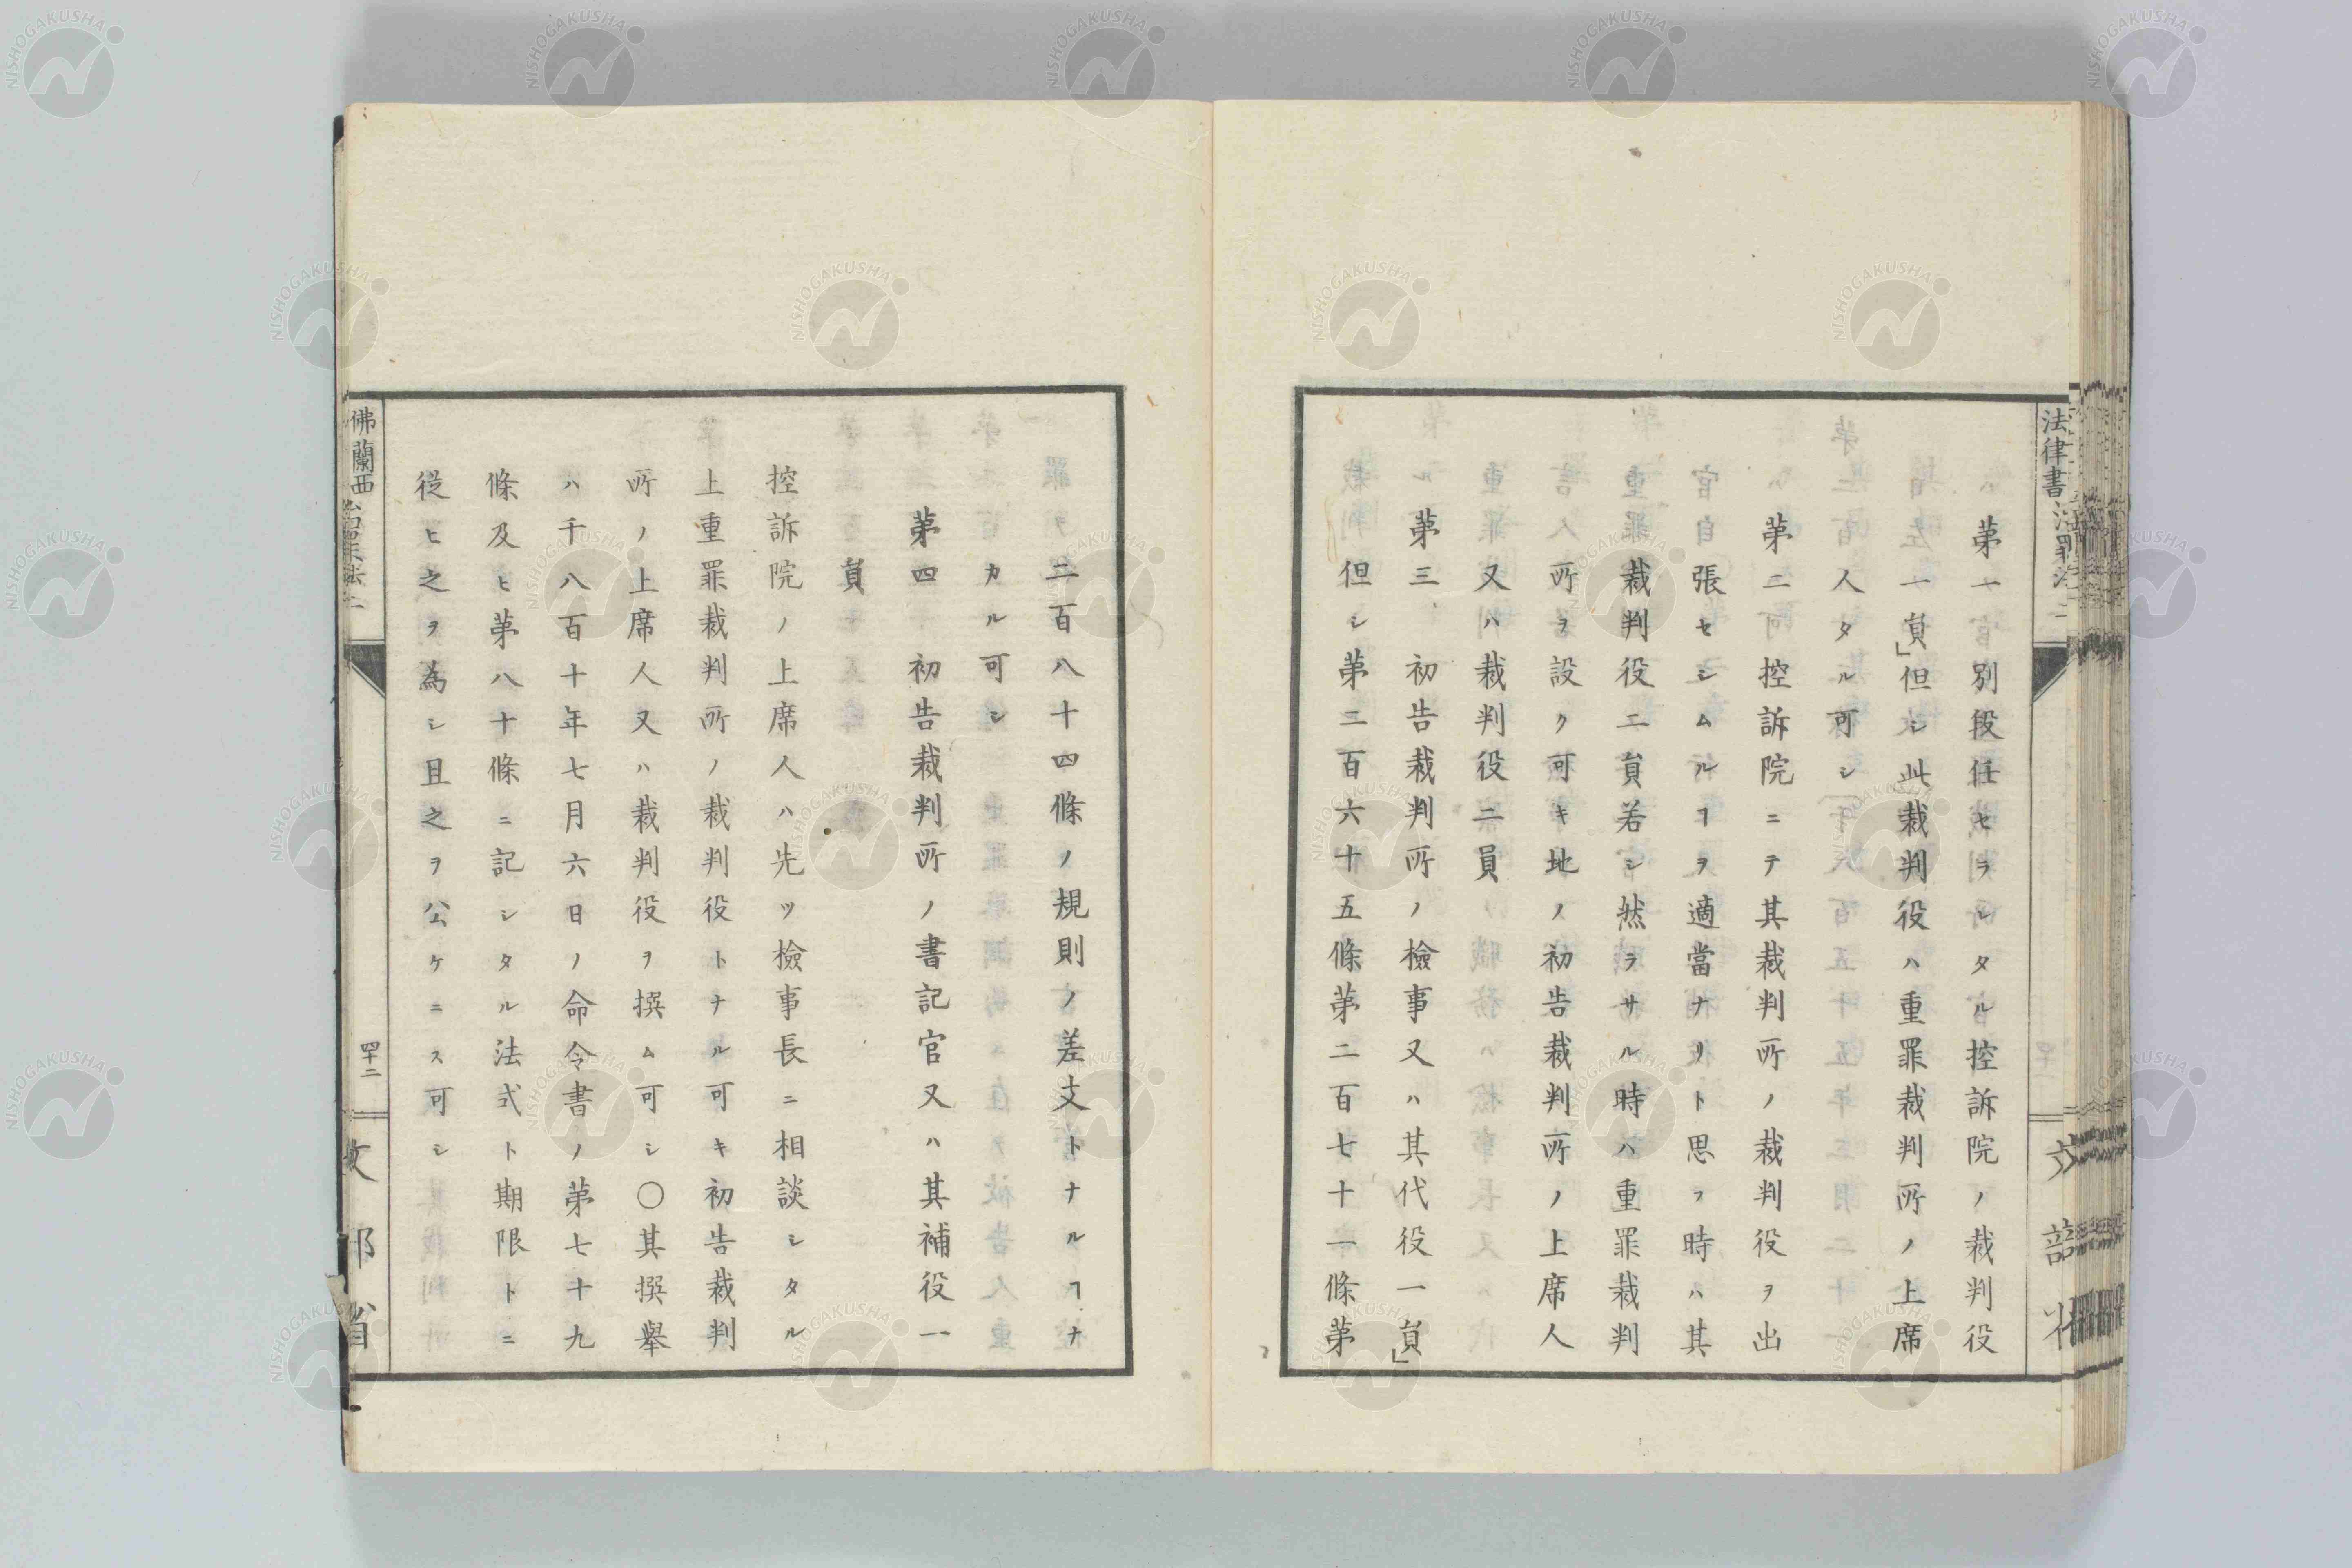 法律書治罪法二
第一 別段任セラレタル控訴院ノ裁判役
一員」但シ此裁判役ハ重罪裁判所ノ上席
人タル可シ
第二 控訴院ニテ其裁判所ノ裁判役ヲ出
官自張セシムルヿヲ適當ナリト思フ時ハ其
重罪裁判役二員若シ然ラサル時ハ重罪裁判
所ヲ設ク可キ地ノ初告裁判所ノ上席人
又ハ裁判役二員
第三 初告裁判所ノ檢事又ハ其代役一員」
但シ第二百六十五條第二百七十一條第
二百八十四條ノ規則ノ差支トナルヿナ
カル可シ
第四 初告裁判所ノ書記官又ハ其補役一
員
控訴院ノ上席人ハ先ツ檢事長ニ相談シタル
上重罪裁判所ノ裁判役トナル可キ初告裁判
所ノ上席人又ハ裁判役ヲ撰ム可シ〇其撰舉
ハ千八百十年七月六日ノ命令書ノ第七十九
條及ヒ第八十條ニ記シタル法式ト期限トニ
從ヒ之ヲ為シ且之ヲ公ケニス可シ
佛蘭西治罪法二
四十二
文部省
NISHOGAKUSHA